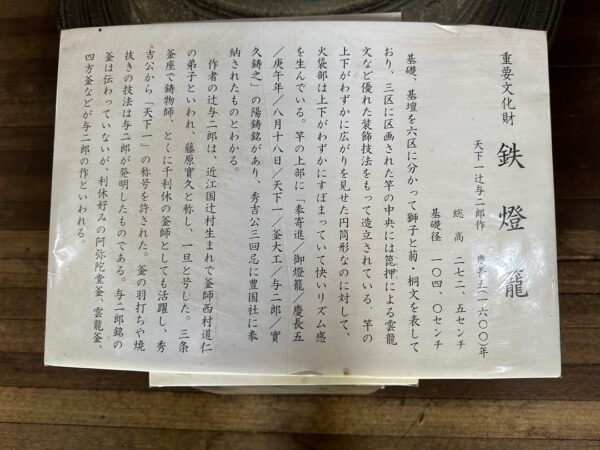 重要文化財　鉄燈籠
天下一辻与二郎作　慶長五(一六〇〇)年
総高　二七二、五センチ
基礎径　一〇四、〇センチ
基礎、基壇を六区に分かって獅子と菊・桐文を表して
おり、三区に区画された竿の中央には箆押による雲龍
文など優れた装飾技法をもって造立されている。竿の
上下がわずかに広がりを見せた円筒形なのに対して、
火袋部は上下がわずかにすぼまっていて快いリズム感
を生んでいる。竿の上部に「奉寄進／御燈籠／慶長五
／庚午年／八月十八日／天下一／釜大工／与二郎／實
久鋳之」の陽鋳銘があり、秀吉公三回忌に豊国社に奉
納されたものとわかる。
作者の辻与二郎は、近江国辻村生まれで釜師西村道仁
の弟子といわれ、藤原實久と称し、一旦と号した。三条
釜座で鋳物師、とくに千利休の釜師としても活躍し、秀
吉公から「天下一」の称号を許された。釜の羽打ちや焼
抜きの技法は与二郎が発明したものである。与二郎銘の
釜は伝わっていないが、利休好みの阿弥陀堂釜、雲龍釜、
四方釜などが与二郎の作といわれる。